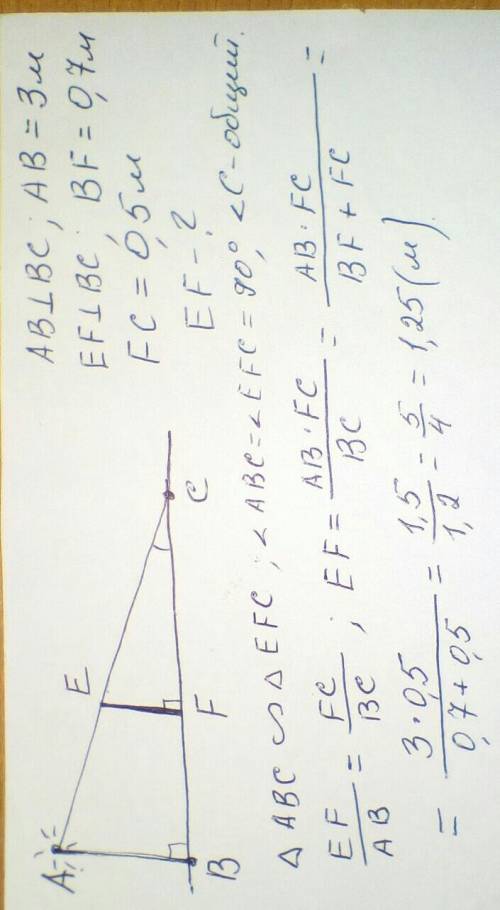 AB⊥BC; AB = 3м
EF⊥BC; BF = 0,7м
FC = 0,5м
EF - ?
A
E
B
F
C
△ABC ∽ △EFC; ∠ABC=∠EFC = 90°, ∠C - общий.
EF/AB = FC/BC; EF = AB·FC/BC = AB·FC/BF + FC =
= 3·0,5/0,7+0,5 = 1,5/1,2 = 5/4 = 1,25(м).